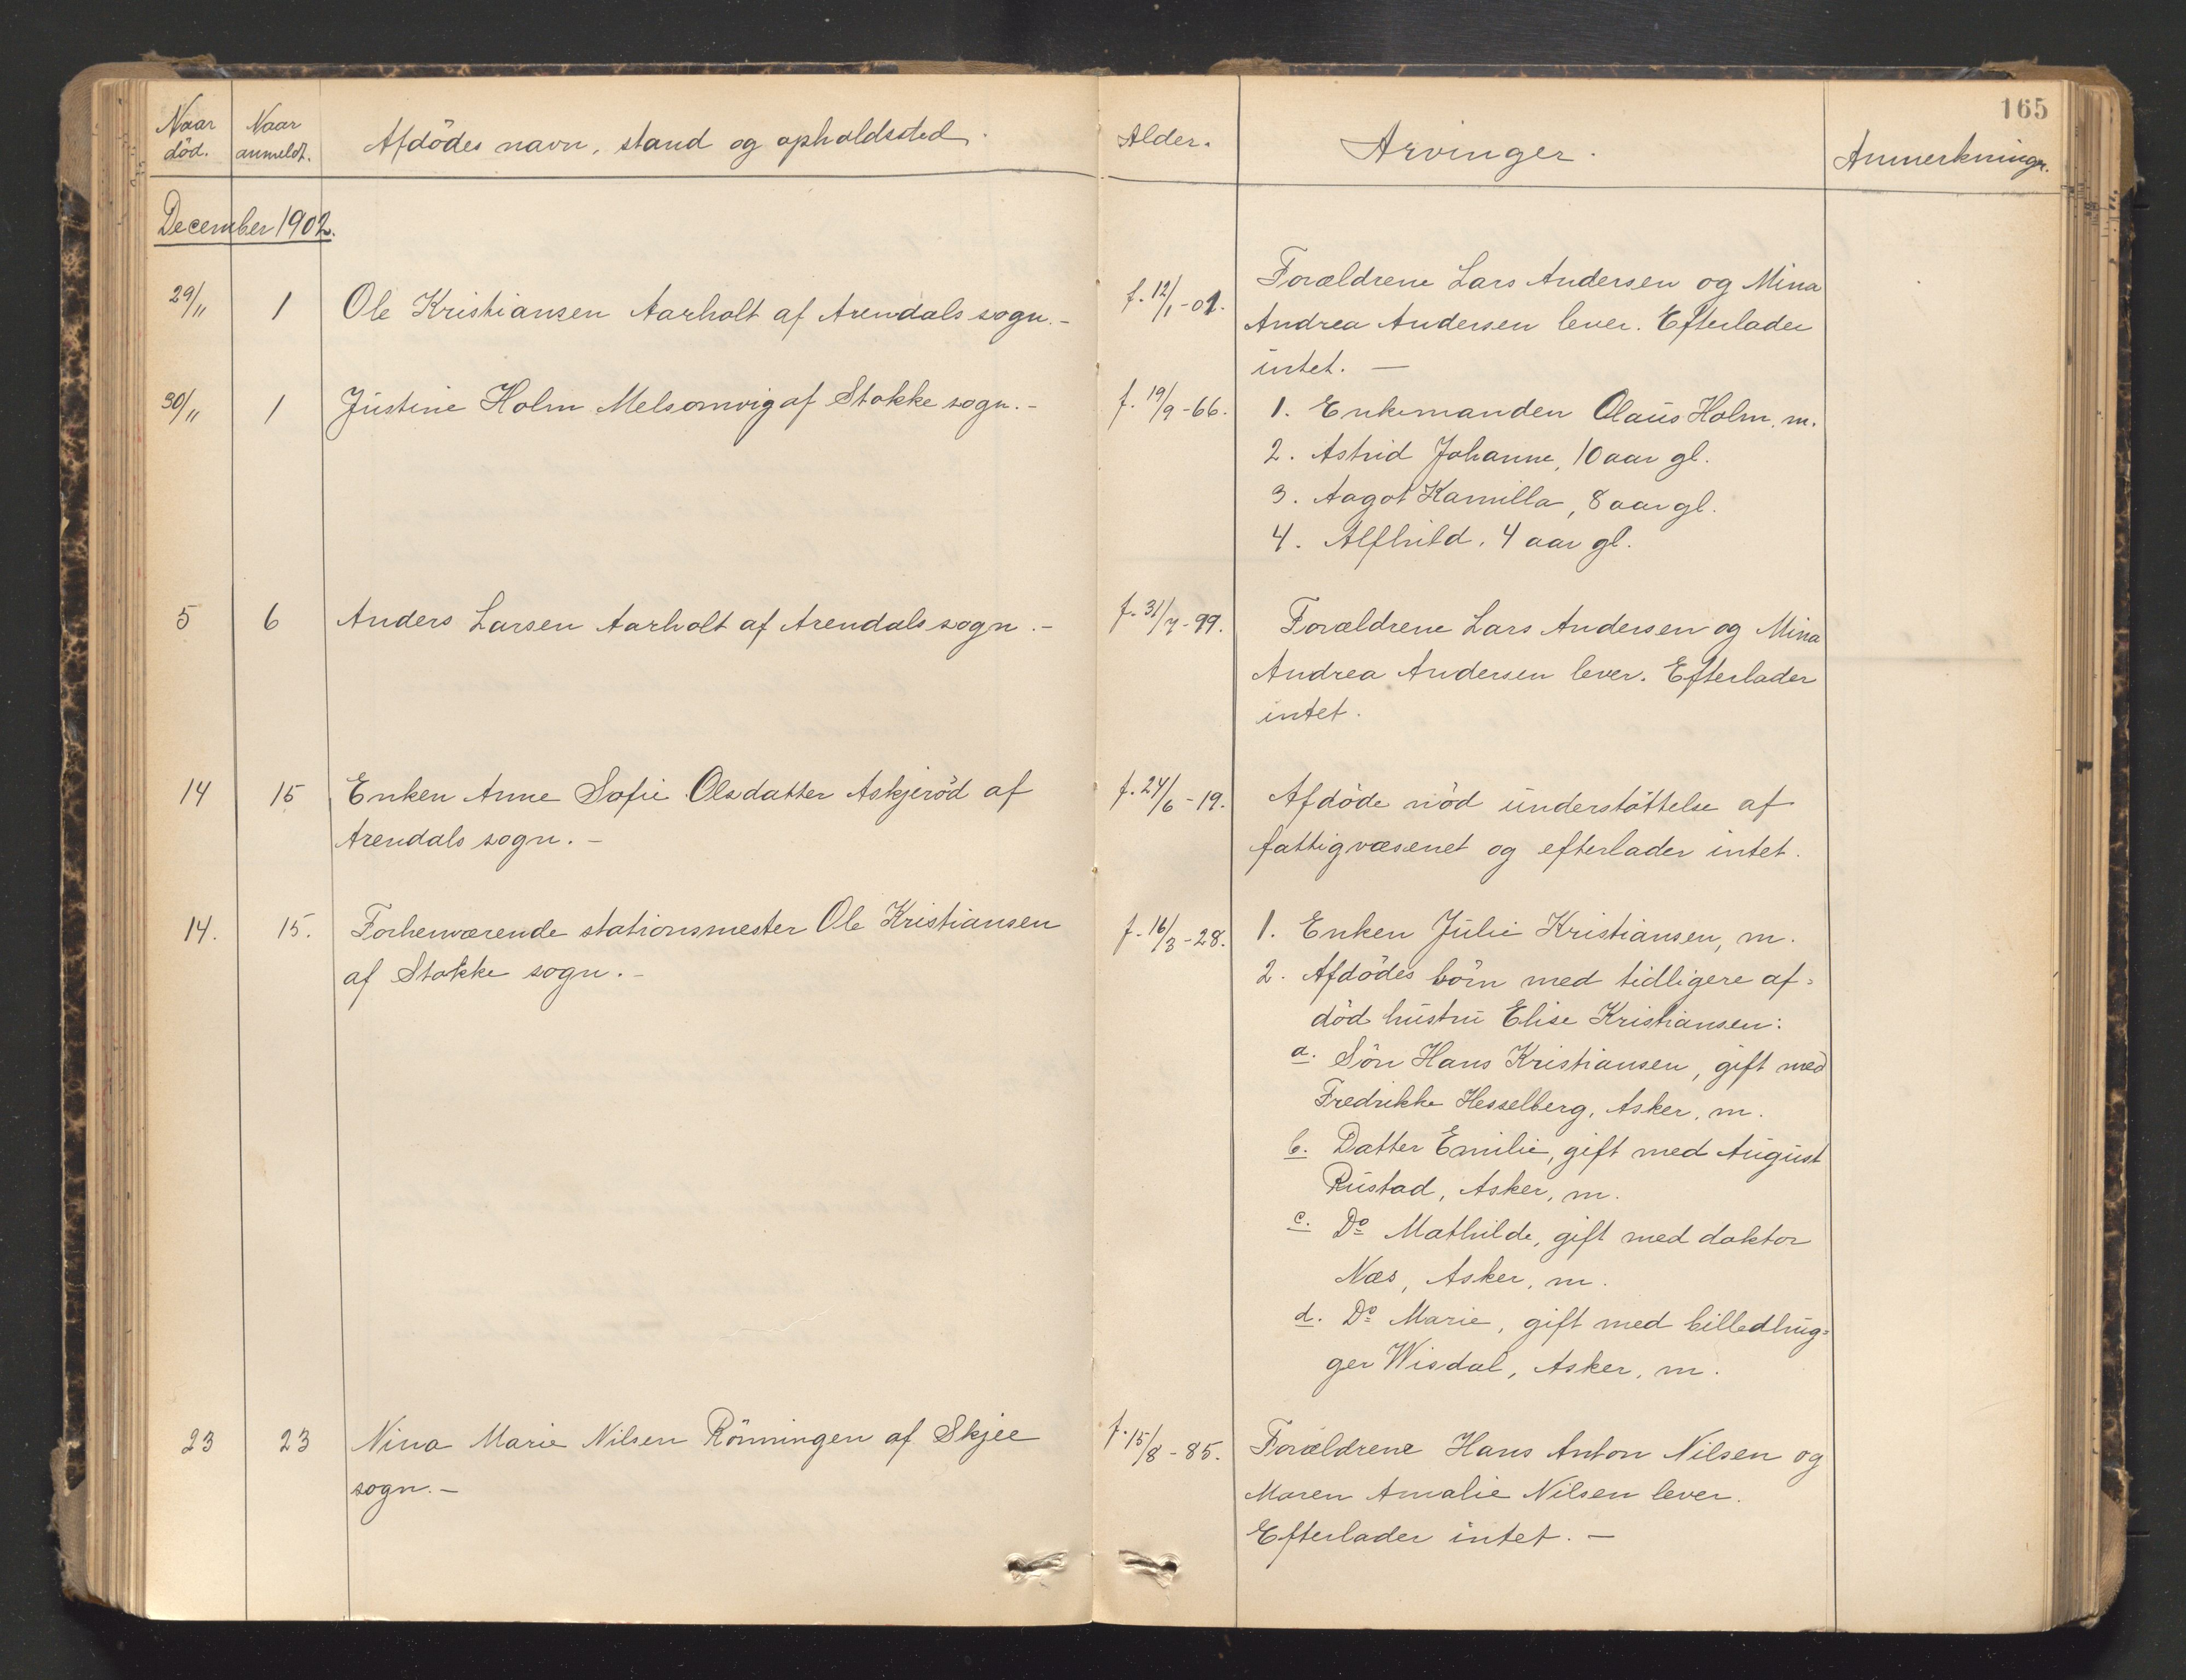 165
Naar død. Naar anmeldt. Afdödes navn, stand og opholdssted. Alder. Arvinger. Anmerkninger.
December 1902.
29/11 1 Ole Kristiansen Aarholt af Arendals sogn. – f. 12/1-01. Forældrene Lars Andersen og Mina
Andrea Andersen lever. Efterlader
intet. —
30/11 1 Justine Holm Melsomvig af Stokke sogn. – f. 19/9-66. 1. Enkemanden Olaus Holm, m.
2. Astrid Johanne, 10 aar gl.
3. Aagot Kamilla, 8 aar gl.
4. Alfhild. 4 aar gl.
5 6 Anders Larsen Aarholt af Arendals sogn. – f. 31/7-99. Forældrene Lars Andersen og Mina
Andrea Andersen lever. Efterlader
intet.
14 15 Enken Anne Sofie Olsdatter Askjeröd af f. 24/6-19. Afdöde nöd understöttelse af
Arendals sogn. – fattigvæsenet og efterlader intet.
14. 15. Forhenværende stationsmester Ole Kristiansen f. 16/3-28. 1. Enken Julie Kristiansen, m.
af Stokke sogn. – 2. Afdödes börn med tidligere af=
död hustru Elise Kristiansen:
a. Sön Hans Kristiansen, gift med
Fredrikke Hesselberg, Asker, m.
b. Datter Emilie, gift med August
Rustad, Asker, m.
c. Do Mathilde, gift med doktor
Næs, Asker, m.
d. Do Marie, gift med billedhug=
ger Wisdal, Asker, m.
23 23 Nina Marie Nilsen Rönningen af Skjee f. 15/8-85. Forældrene Hans Anton Nilsen og
sogn. – Maren Amalie Nilsen lever.
Efterlader intet. –